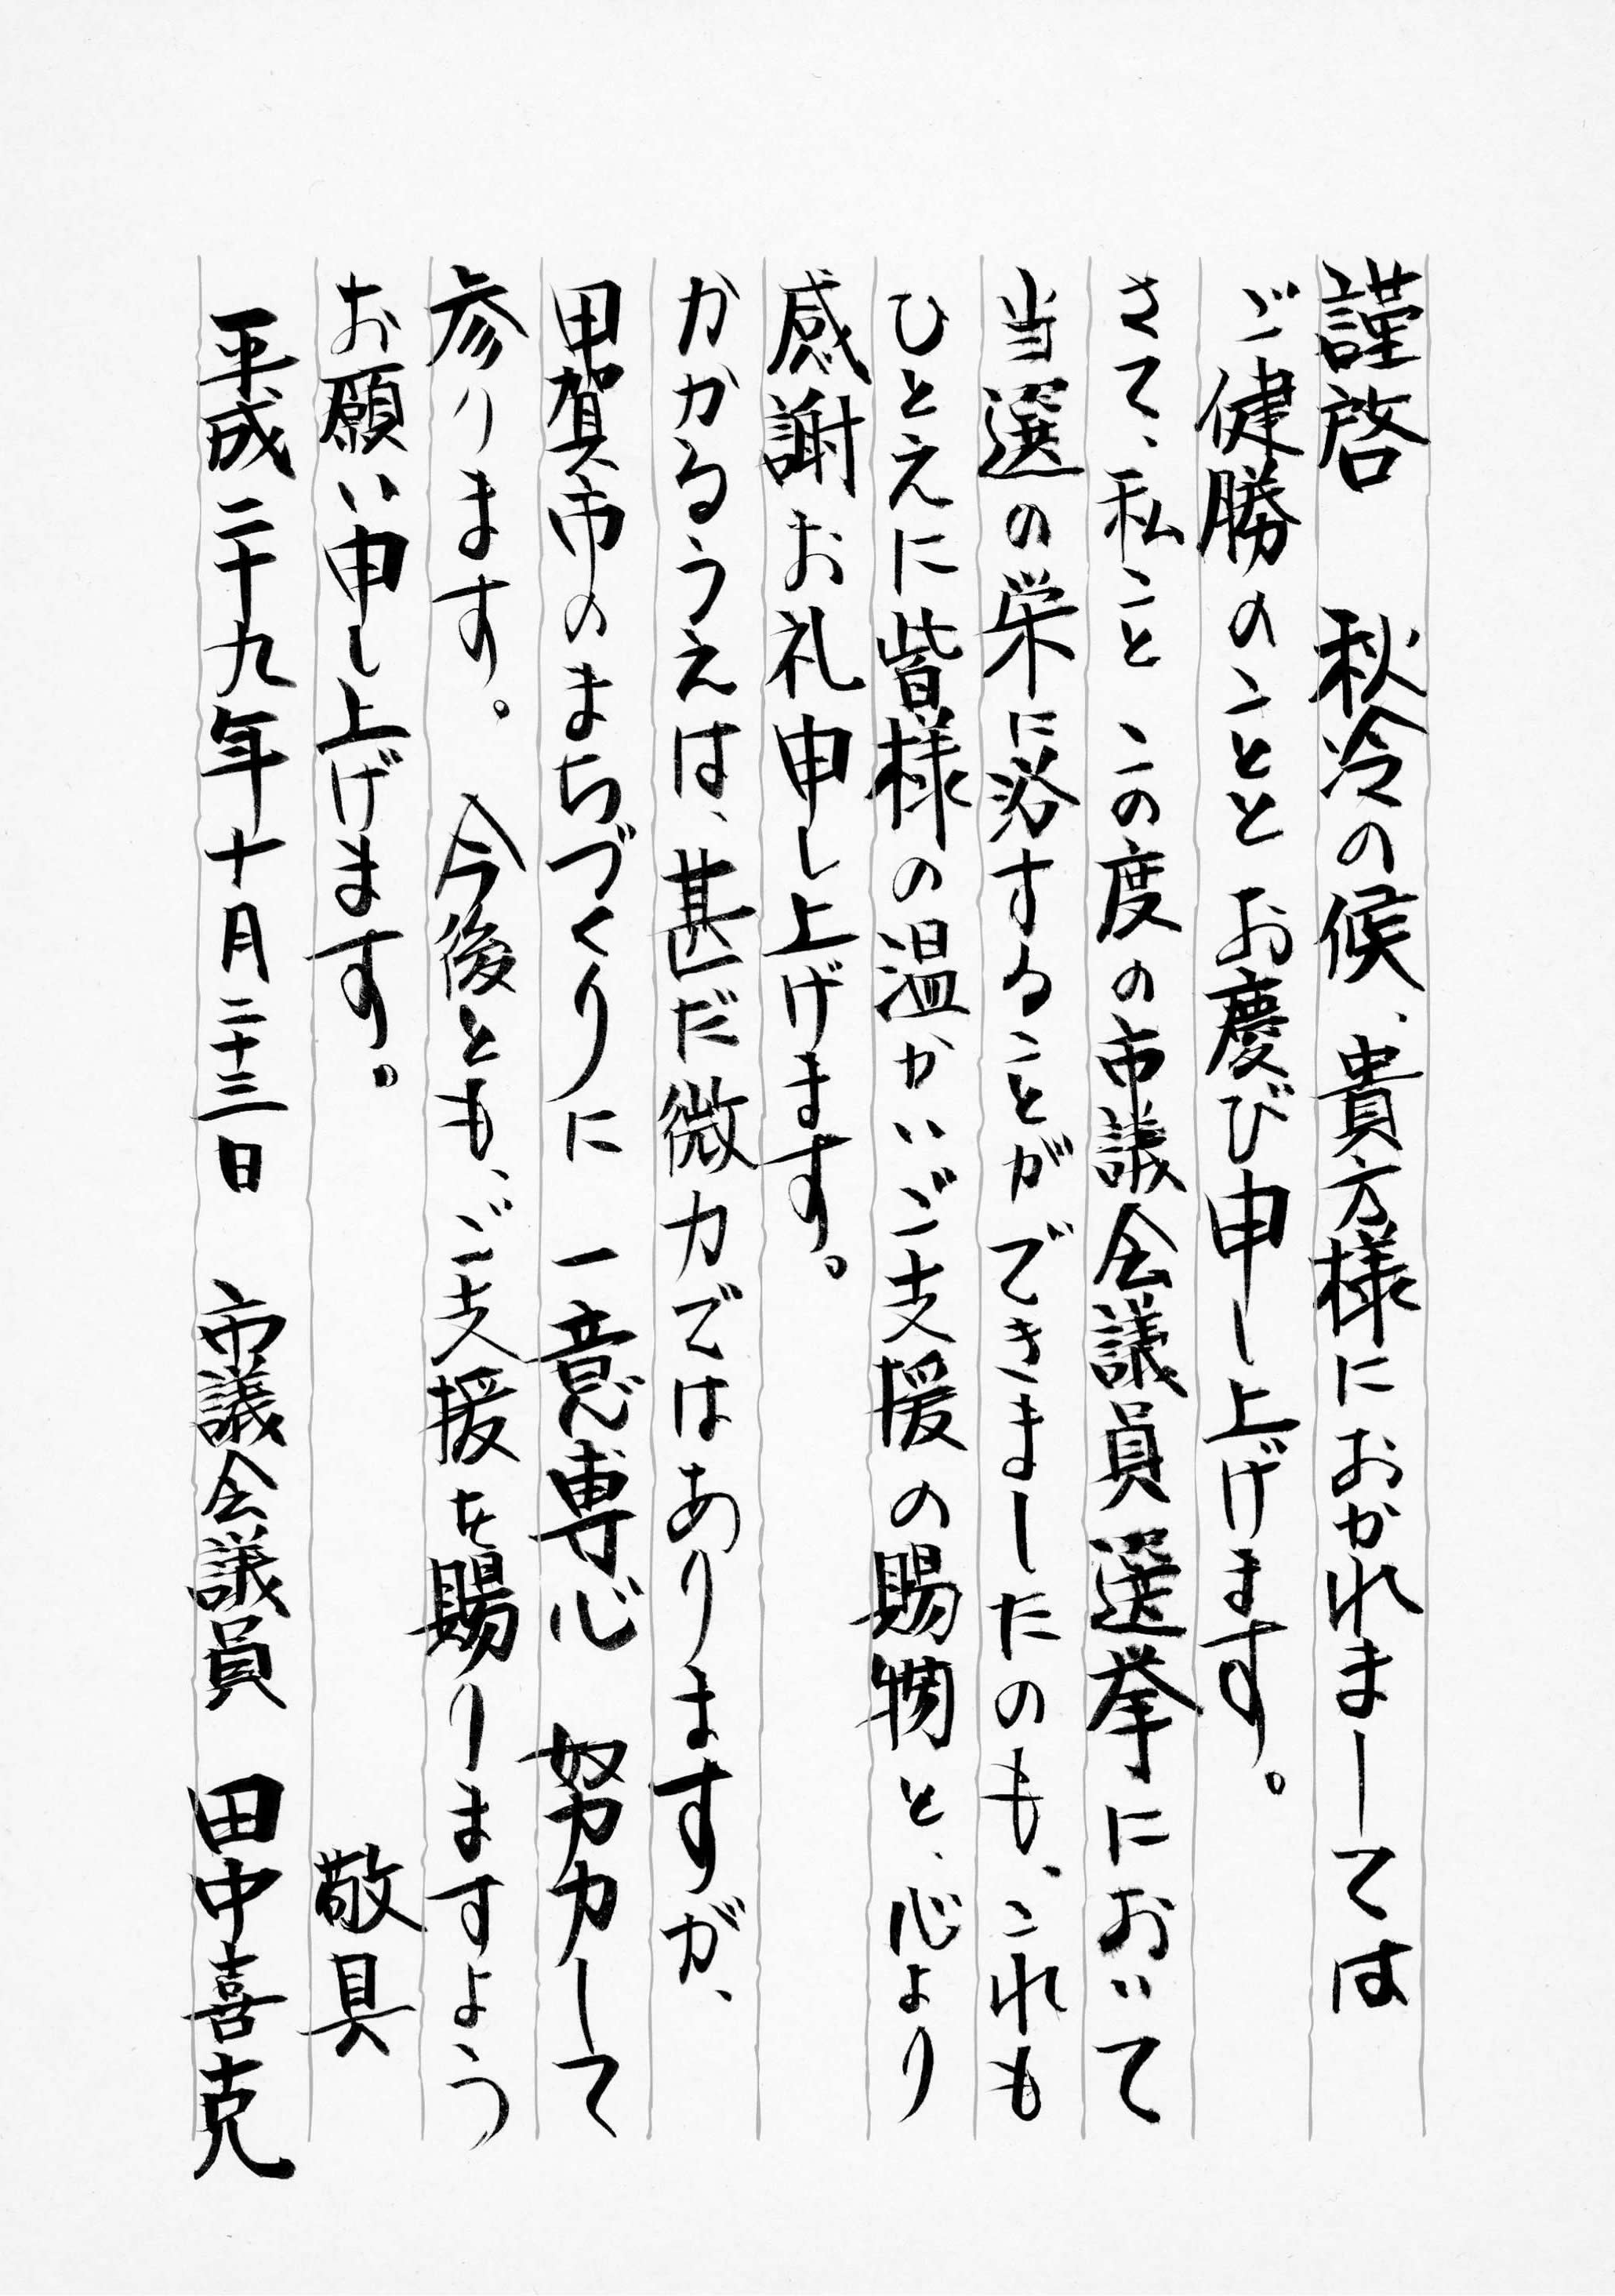 謹啓　秋冷の候、貴方様におかれましては
ご健勝のこととお慶び申し上げます。
さて、私こと この度の市議会議員選挙において
当選の栄に浴することができましたのも、これも
ひとえに皆様の温かいご支援の賜物と、心より
感謝お礼申し上げます。
かかるうえは、甚だ微力ではありますが、
甲賀市のまちづくりに 一意専心 努力して
参ります。　今後とも、ご支援を賜りますよう
お願い申し上げます。　敬具
平成二十九年十月二十三日　市議会議員　田中喜克